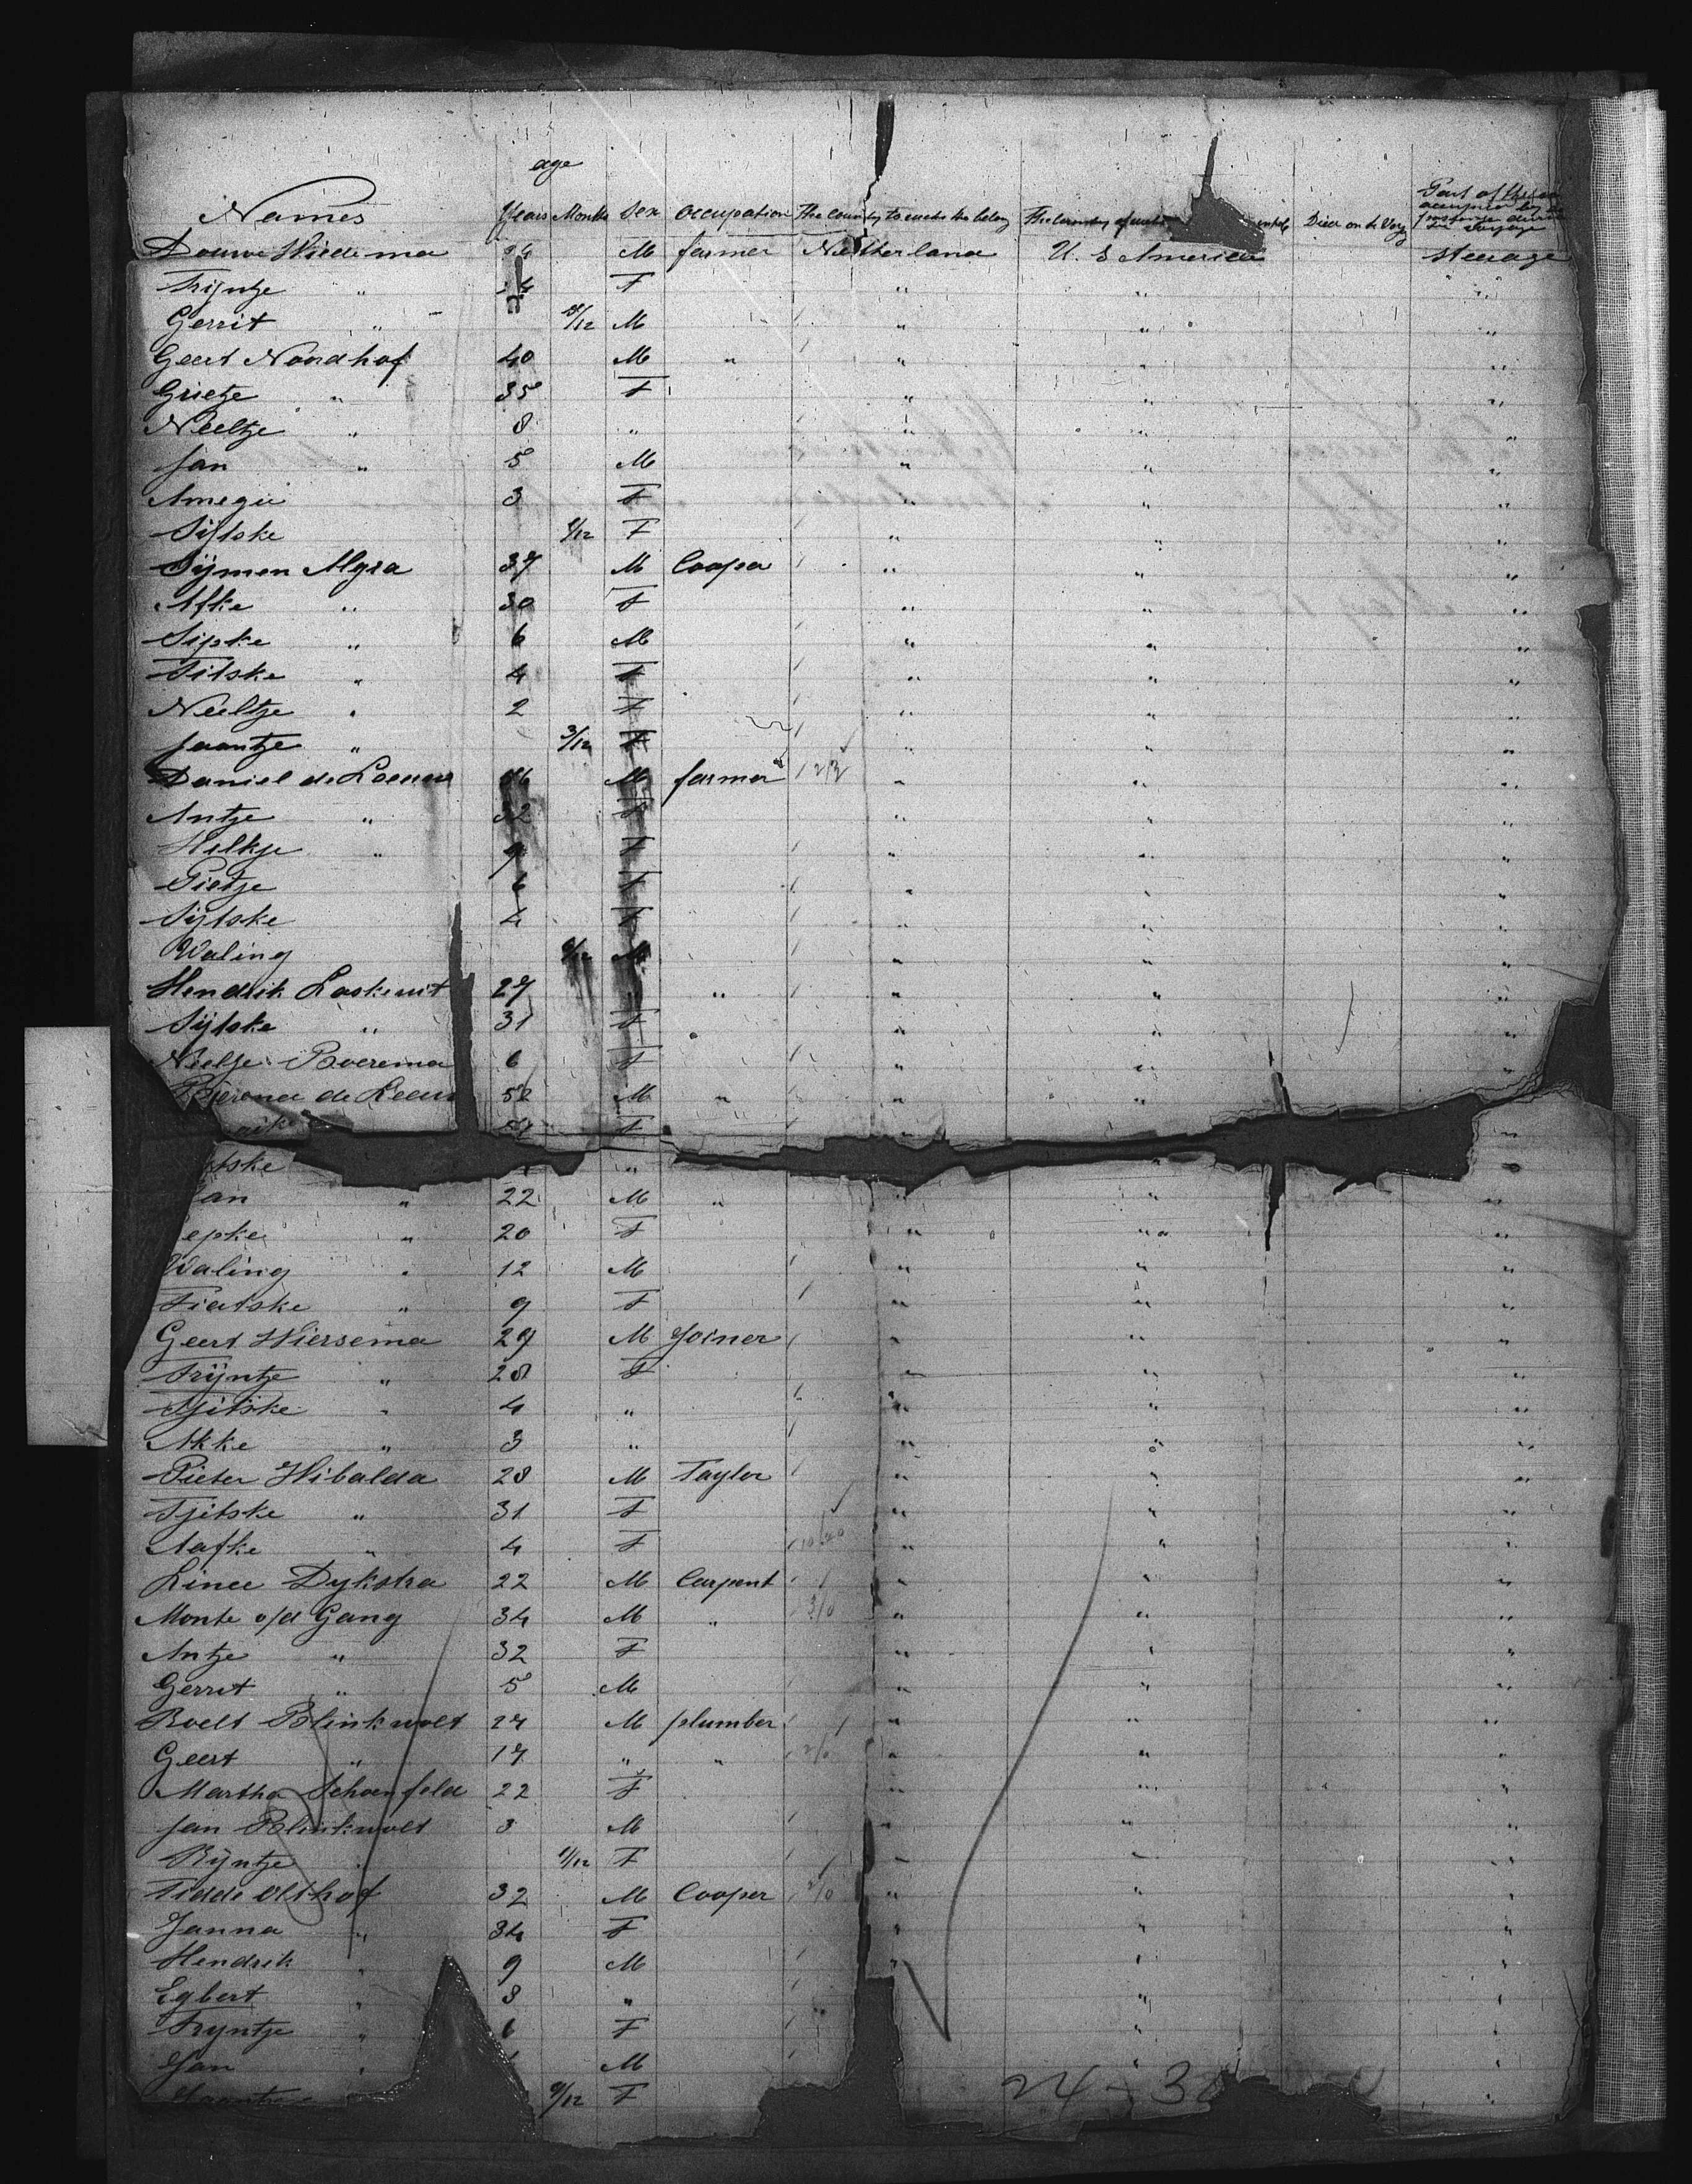 age
Names Years Months Sex Occupation The country to which the belong The country of which Died on the Voy Part of the
Douwe Wiedema M farmer Netherland U. S America steerage
Trijntje " F " " "
Gerrit " /12 M " " "
Geert Noordhof 40 M " " " "
Grietje " 35 F " " "
Neeltje " 8 " " " "
Jan " 5 M " " "
3 F " " "
Sijtske /12 F " " "
Sijmen Algra 37 M Cooper " " "
Afke " 30 F " " "
Sipke " 6 M " " "
Titske " 4 F " " "
Neeltje " 2 F " " "
Jaantje " 3/12 F " " "
Daniel de Leeuw M farmer " " "
Antje " 32 F " " "
Hilkje " 9 F " " "
Pietje 6 F " " "
Sijtske 4 F " " "
Waling /12 M " " "
Hendrik 27 " " " " "
Sijtske " 31 F " " "
Neeltje Boerema 6 F " " "
de Leeuw 52 M " " " "
F " "
tske " " "
an " 22 M " " " "
epke " 20 F " " "
Waling " 12 M " " "
Tiatske " 9 F " " "
Geert Wiersema 29 M Joiner " " "
Trijntje " 28 F " " "
Tjitske " 4 " " " "
Akke " 3 " " " "
Pieter Wibalda 28 M Taylor " " "
Tjitske " 31 F " " "
Aafke " 4 F " " "
Linee Dykstra 22 M Carpent " " "
Monte o/d Gang 34 M " " " "
Antje " 32 F " " "
Gerrit " 5 M " " "
Roelt Blinkwolt 24 M plumber " " "
Geert " 17 " " " " "
Martha Schoenfeld 22 F " " "
Jan Blinkwolt 3 M " " "
Rijntje " /12 F " " "
Tidde Olthof 32 M Cooper " " "
Janna " 34 F " " "
Hendrik " 9 M " " "
Egbert " 8 " " "
Tryntje " 6 F " "
Jan " M " "
/12 F "